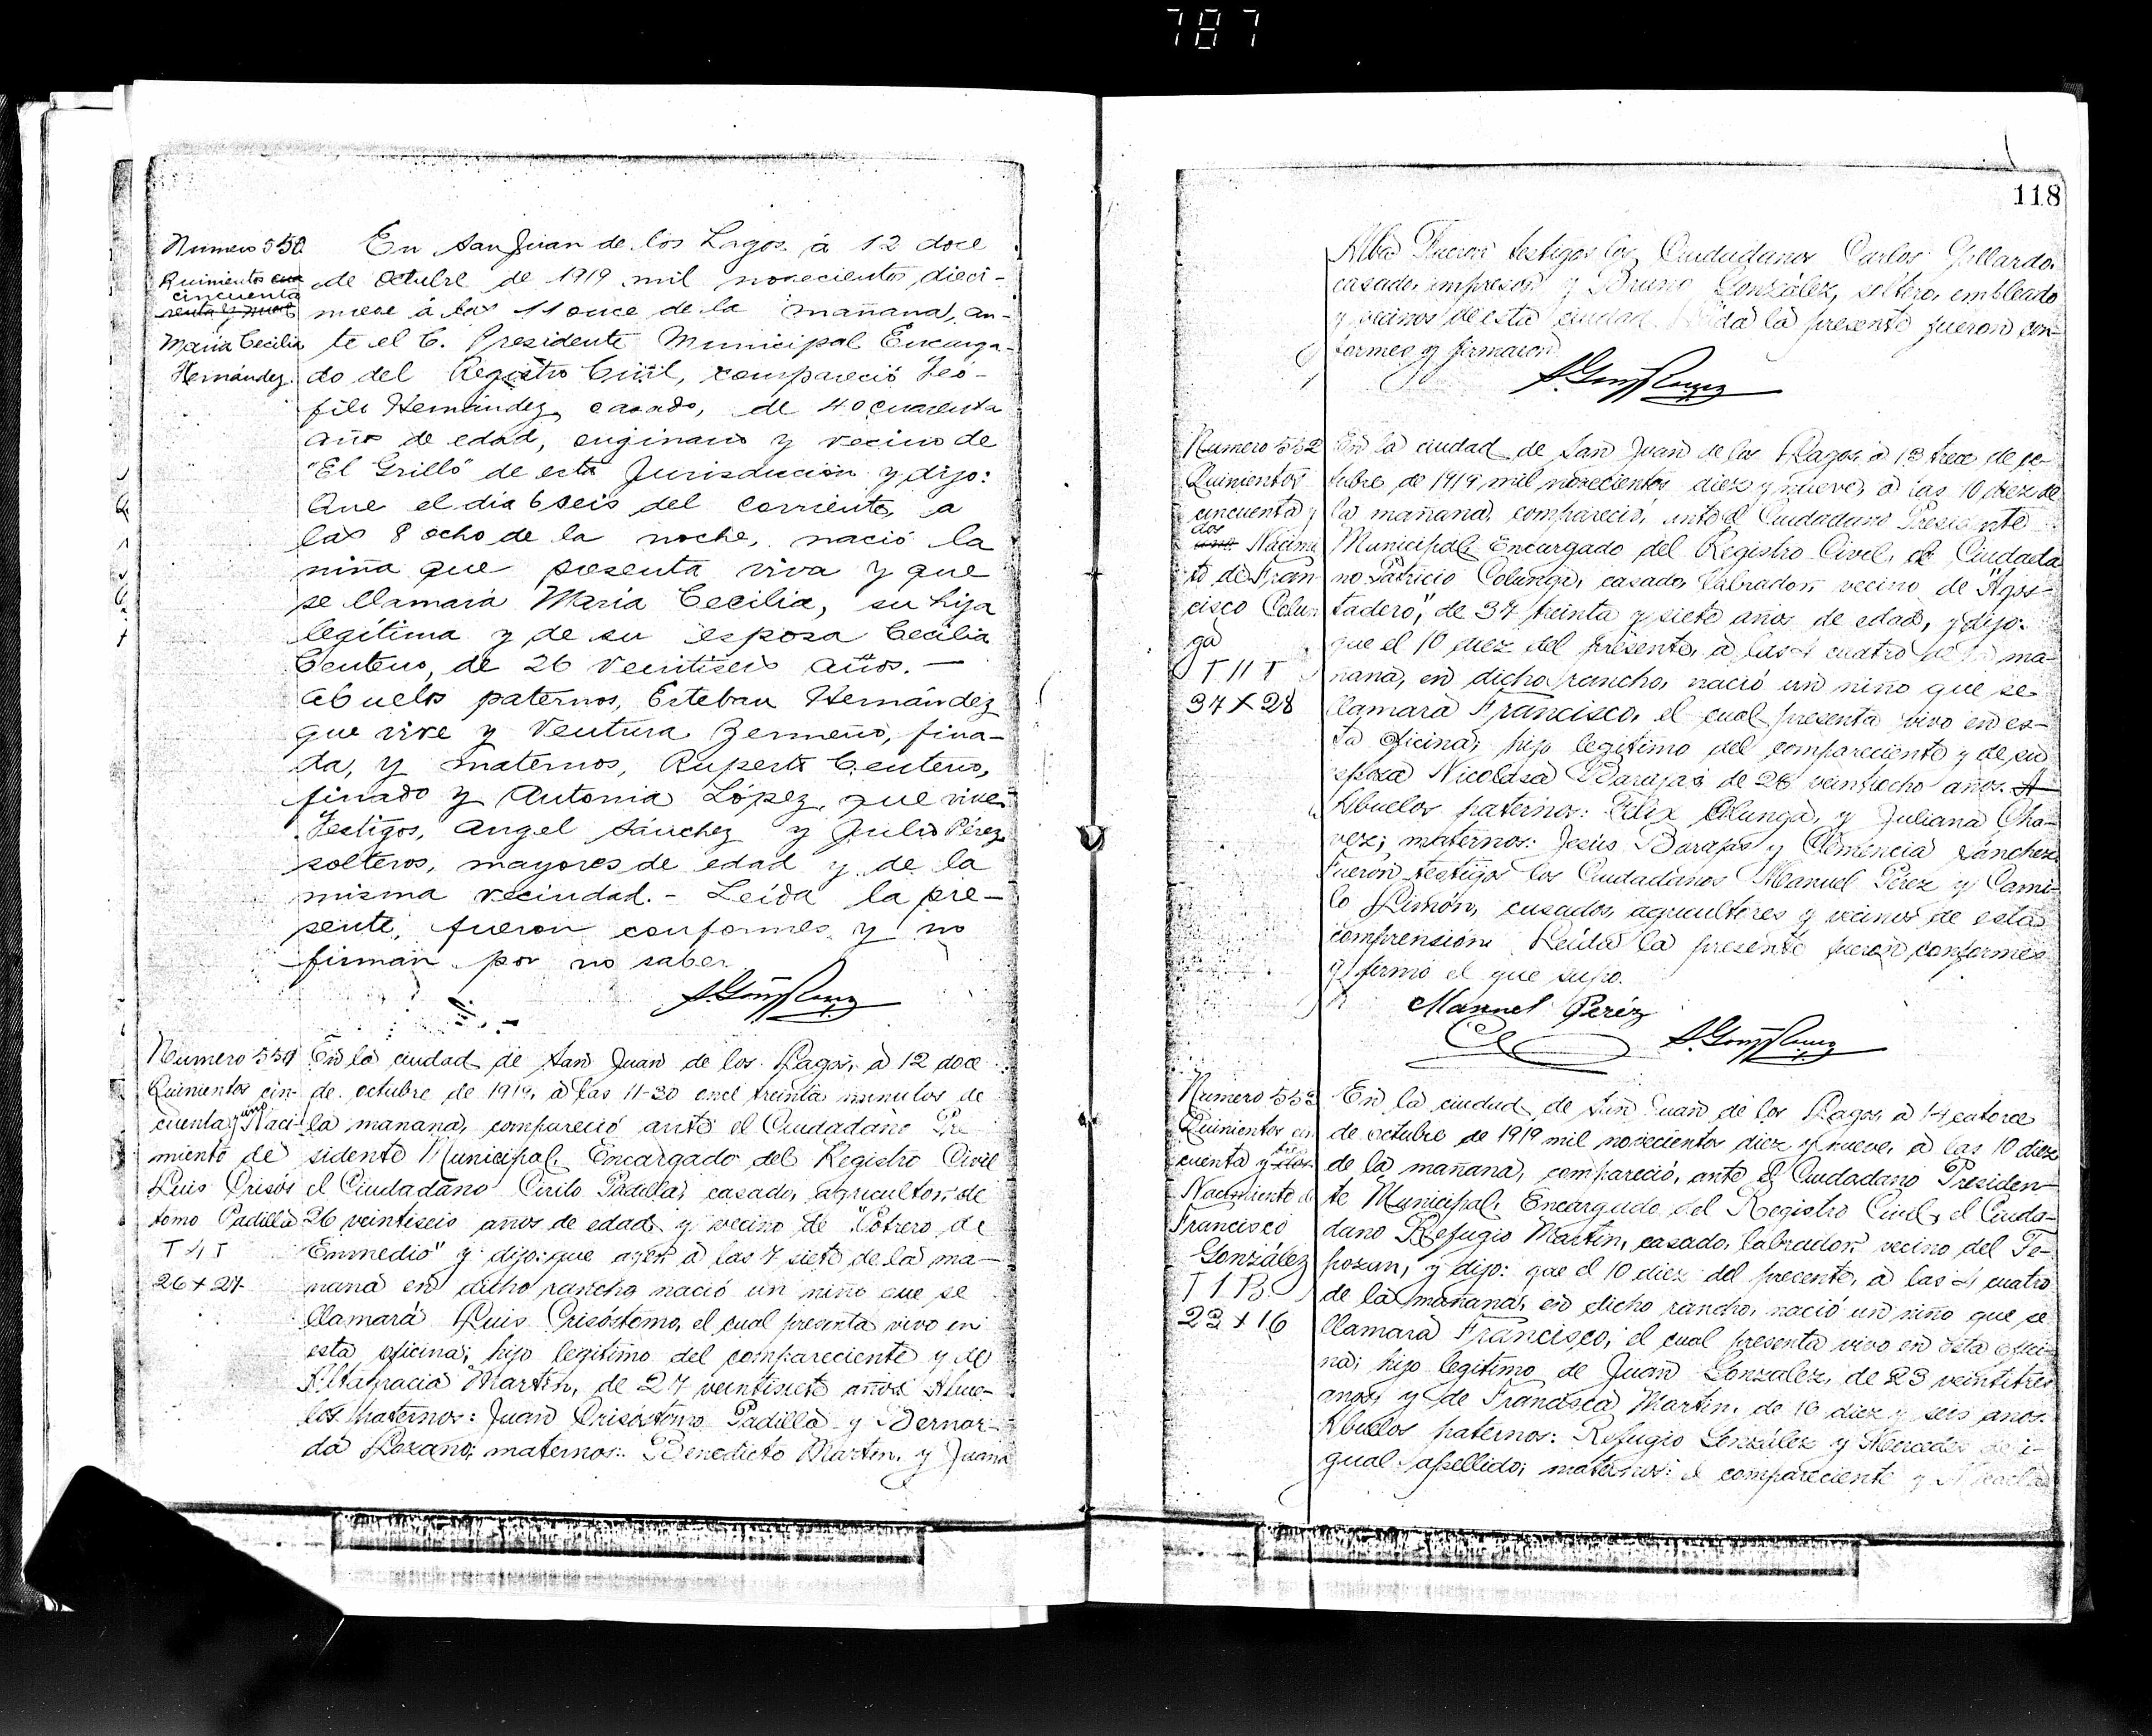 787
Numero 550
Quinientos cua
cincuenta
renta y nueve
María Cecilia
Hernández.
En San Juan de los Lagos á 12 doce
de Octubre de 1919 mil novecientos dieci-
nueve á las 11 once de la mañana, an-
te el C. Presidente Municipal Encarga-
do del Registro Civil, compareció Teó-
filo Hernández, casado, de 40 cuarenta
años de edad, originario y vecino de
"El Grillo" de esta Jurisdicción y dijo:
Que el dia 6 seis del corriente, a
las 8 ocho de la noche, nació la
niña que presenta viva y que
se llamará María Cecilia, su hija
legítima y de su esposa Cecilia
Centeno, de 26 veintiseis años. —
Abuelos paternos, Esteban Hernández
que vive y Ventura Zermeño, fina-
da, y maternos, Ruperto Centeno,
finado y Antonia López, que vive.
Testigos, Angel Sánchez y Julio Pérez
solteros, mayores de edad y de la
misma vecindad. - Leída la pre-
sente, fueron conformes y no
firman por no saber.
Numero 551
Quinientos cin-
cuenta y uno Naci-
miento de
Luis Crisós
tomo Padilla
T 4 T
26 + 27
En la ciudad de San Juan de los Lagos, á 12 doce
de octubre de 1919, á las 11-30 once treinta minutos de
la mañana, compareció ante el Ciudadano Pre
sidente Municipal, Encargado del Registro Civil
el Ciudadano Cirilo Padilla, casado, agricultor, de
26 veintiseis años de edad y vecino de "Potrero de
Enmedio" y dijo: que ayer á las 7 siete de la ma-
ñana en dicho rancho nació un niño que se
llamará Luis Crisóstomo, el cual presenta vivo en
esta oficina; hijo legitimo del compareciente y de
Altagracia Martín, de 27 veintisiete años. Abue-
los paternos: Juan Crisostomo Padilla y Bernar-
da Lozano; maternos: Benedicto Martín, y Juana
118
Alba Fueron testigos los Ciudadanos Carlos Gallardo,
casado, impresor y Bruno González, soltero, empleado
y vecinos de esta ciudad. Leída la presente fueron con-
formes y firmaron.
Numero 552
Quinientos
cincuenta y
dos
Nacimi
to de Fran-
cisco Colun
ga
T 11 T
37 X 28
En la ciudad de San Juan de los Lagos, á 13 trece de oc-
tubre de 1919, mil novecientos diez y nueve, á las 10 diez de
la mañana, compareció, ante el Ciudadano Presidente
Municipal, Encargado del Registro Civil, el Ciudada
no Patricio Colunga, casado, labrador, vecino de "Agos-
tadero", de 37 treinta y siete años de edad, y dijo:
que el 10 diez del presente, á las 4 cuatro de la ma-
ñana, en dicho rancho, nació un niño que se
llamará Francisco, el cual presenta vivo en es-
ta oficina; hijo legítimo del compareciente y de su
esposa Nicolasa Barajas de 28 veintiocho años. A
Abuelos paternos: Félix Colunga, y Juliana Cha-
vez; maternos: Jesús Barajas y Clemencia Sánchez.
Fueron testigos los Ciudadanos Manuel Pérez y Cami-
lo Limón, casados, agricultores y vecinos de esta
comprensión. Leída la presente fueron conformes
y firmó el que supo.
Manuel Peréz
Numero 553
Quinientos cin
cuenta y tres
Nacimiento de
Francisco
González
T 1 B
23 + 16
En la ciudad de San Juan de los Lagos, á 14 catorce
de octubre de 1919 mil novecientos diez y nueve, á las 10 diez
de la mañana, compareció, ante el Ciudadano Presiden-
te Municipal, Encargado del Registro Civil, el Ciuda-
dano Refugio Martín, casado, labrador, vecino del Te-
pozan, y dijo: que el 10 diez del presente, á las 4 cuatro
de la mañana, en dicho rancho, nació un niño que se
llamará Francisco, el cual presenta vivo en esta ofici-
na; hijo legitimo de Juan González, de 23 veintitres
años, y de Francisca Martín, de 16 diez y seis años.
Abuelos paternos: Refugio González y Mercedes de i-
gual apellido; maternos: el compareciente y